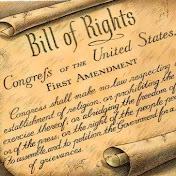 Bill of Rights
Congreſs OF THE United States.
FIRST AMENDMENT
Congress shall make no law respecting
establishment of religion, or prohibiting the
exercise thereof; or abridging the freedom of
or of the press; or the right of the people pea
to assemble, and to petition the Government for a
of grievances.